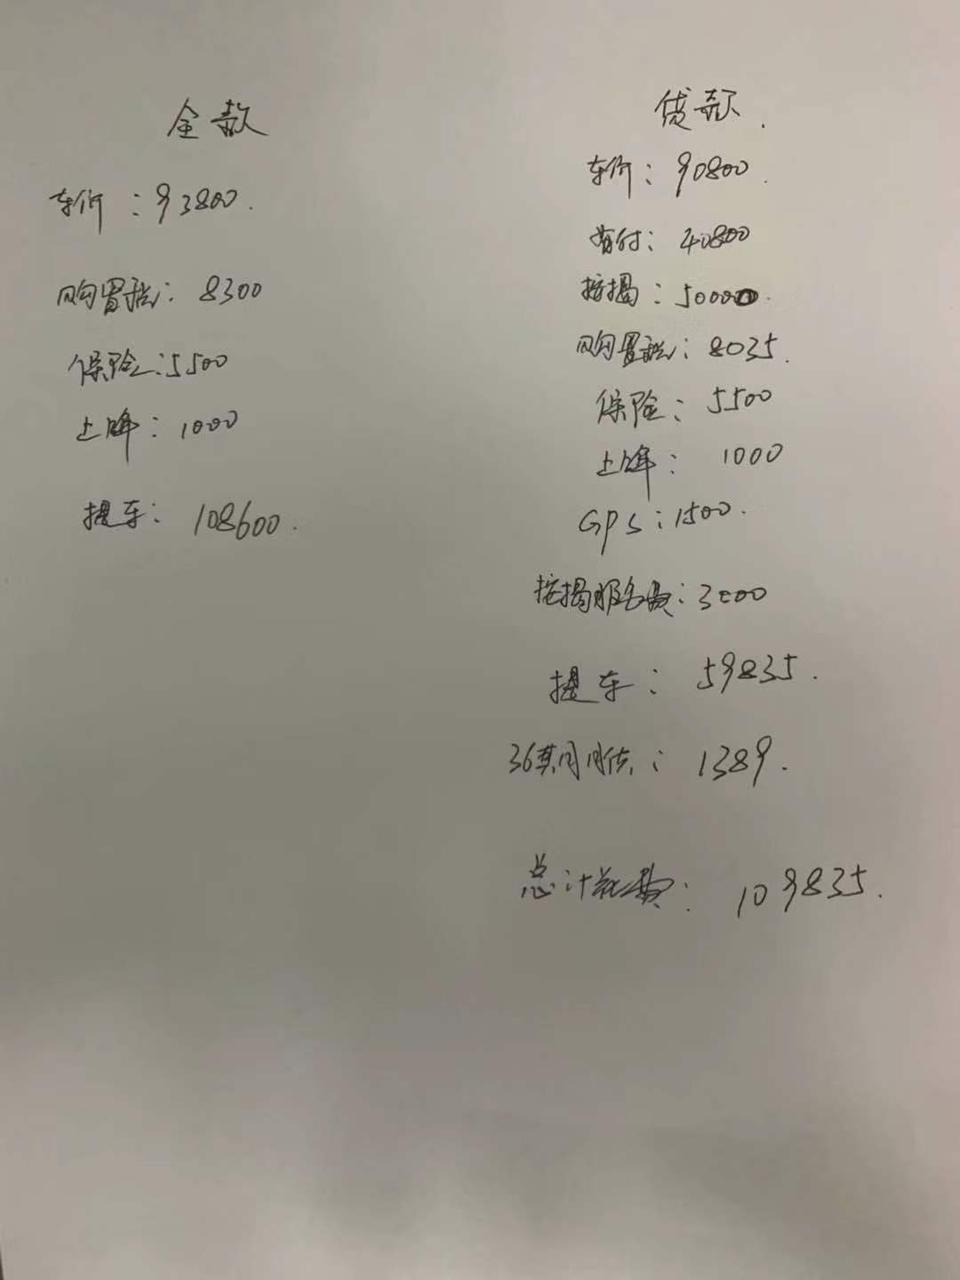 全款
车价：93800.
购置税：8300
保险：5500
上牌：1000
提车：108600.
贷款.
车价：90800.
首付：40800
按揭：50000.
购置税：8035.
保险：5500
上牌：1000
GPS：1500.
按揭服务费：3000
提车：59835.
36期月供：1389.
总计花费：109835.